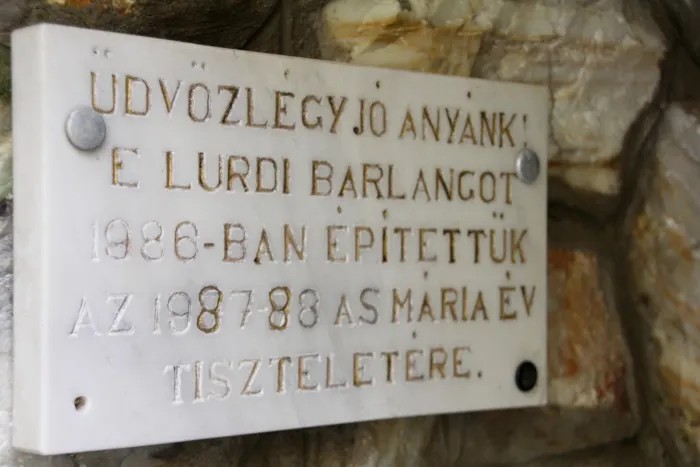 ÜDVŐZLÉGY JÓ ANYÁNK!
E LURDI BARLANGOT
1986-BAN ÉPÍTETTÜK
AZ 1987-88 AS MÁRIA ÉV
TISZTELETÉRE.